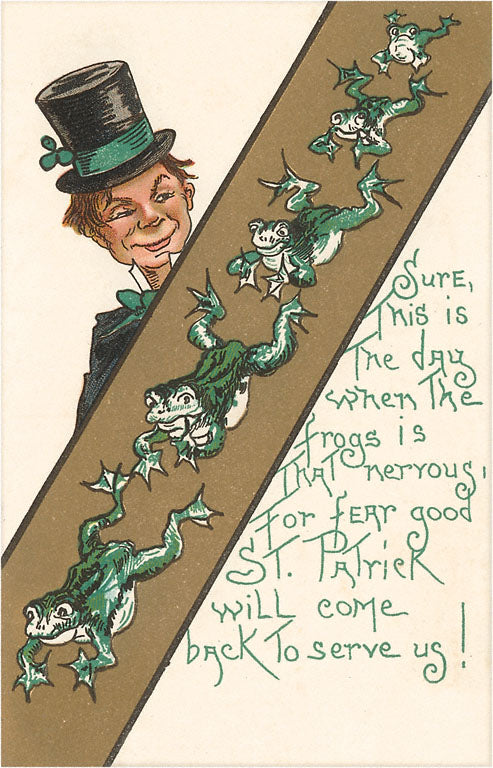 Sure,
This is
The day
when The
frogs is
THAT nervous,
For fear good
ST. Patrick
will come
back To serve us!